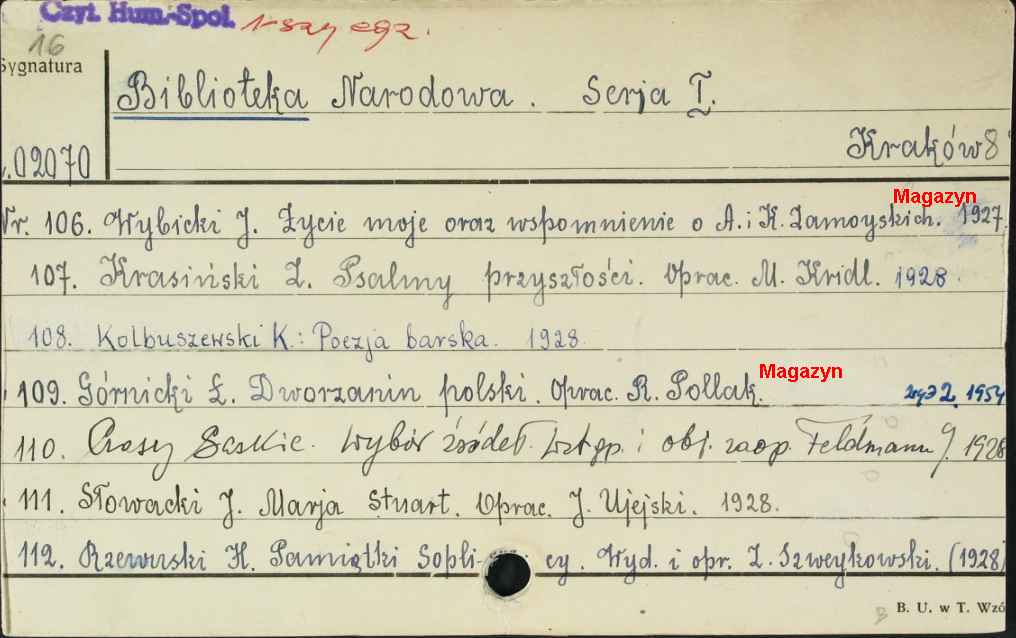 Czyt. Hum.-Spol. 1-szy egz.
16
Sygnatura
Biblioteka Narodowa. Serja I.
Kraków 8
02070
Magazyn
Nr. 106. Wybicki J. Życie moje oraz wspomnienie o A. i K. Zamoyskich. 1927.
107. Krasiński Z. Psalmy przyszłości. Oprac. M. Kridl. 1928.
108. Kolbuszewski K.: Poezja barska. 1928.
Magazyn
109. Górnicki Ł. Dworzanin polski. Oprac. R. Pollak. wyd 2. 1954
110. Czasy Saskie. Wybór źródeł. Wstęp. i obj. zaop. Feldmann J. 1928
111. Słowacki J. Marja Stuart. Oprac. J. Ujejski. 1928.
112. Rzewuski H. Pamiątki Sopli- cy. Wyd. i opr. Z. Szweykowski. (1928)
B. U. w T. Wzó